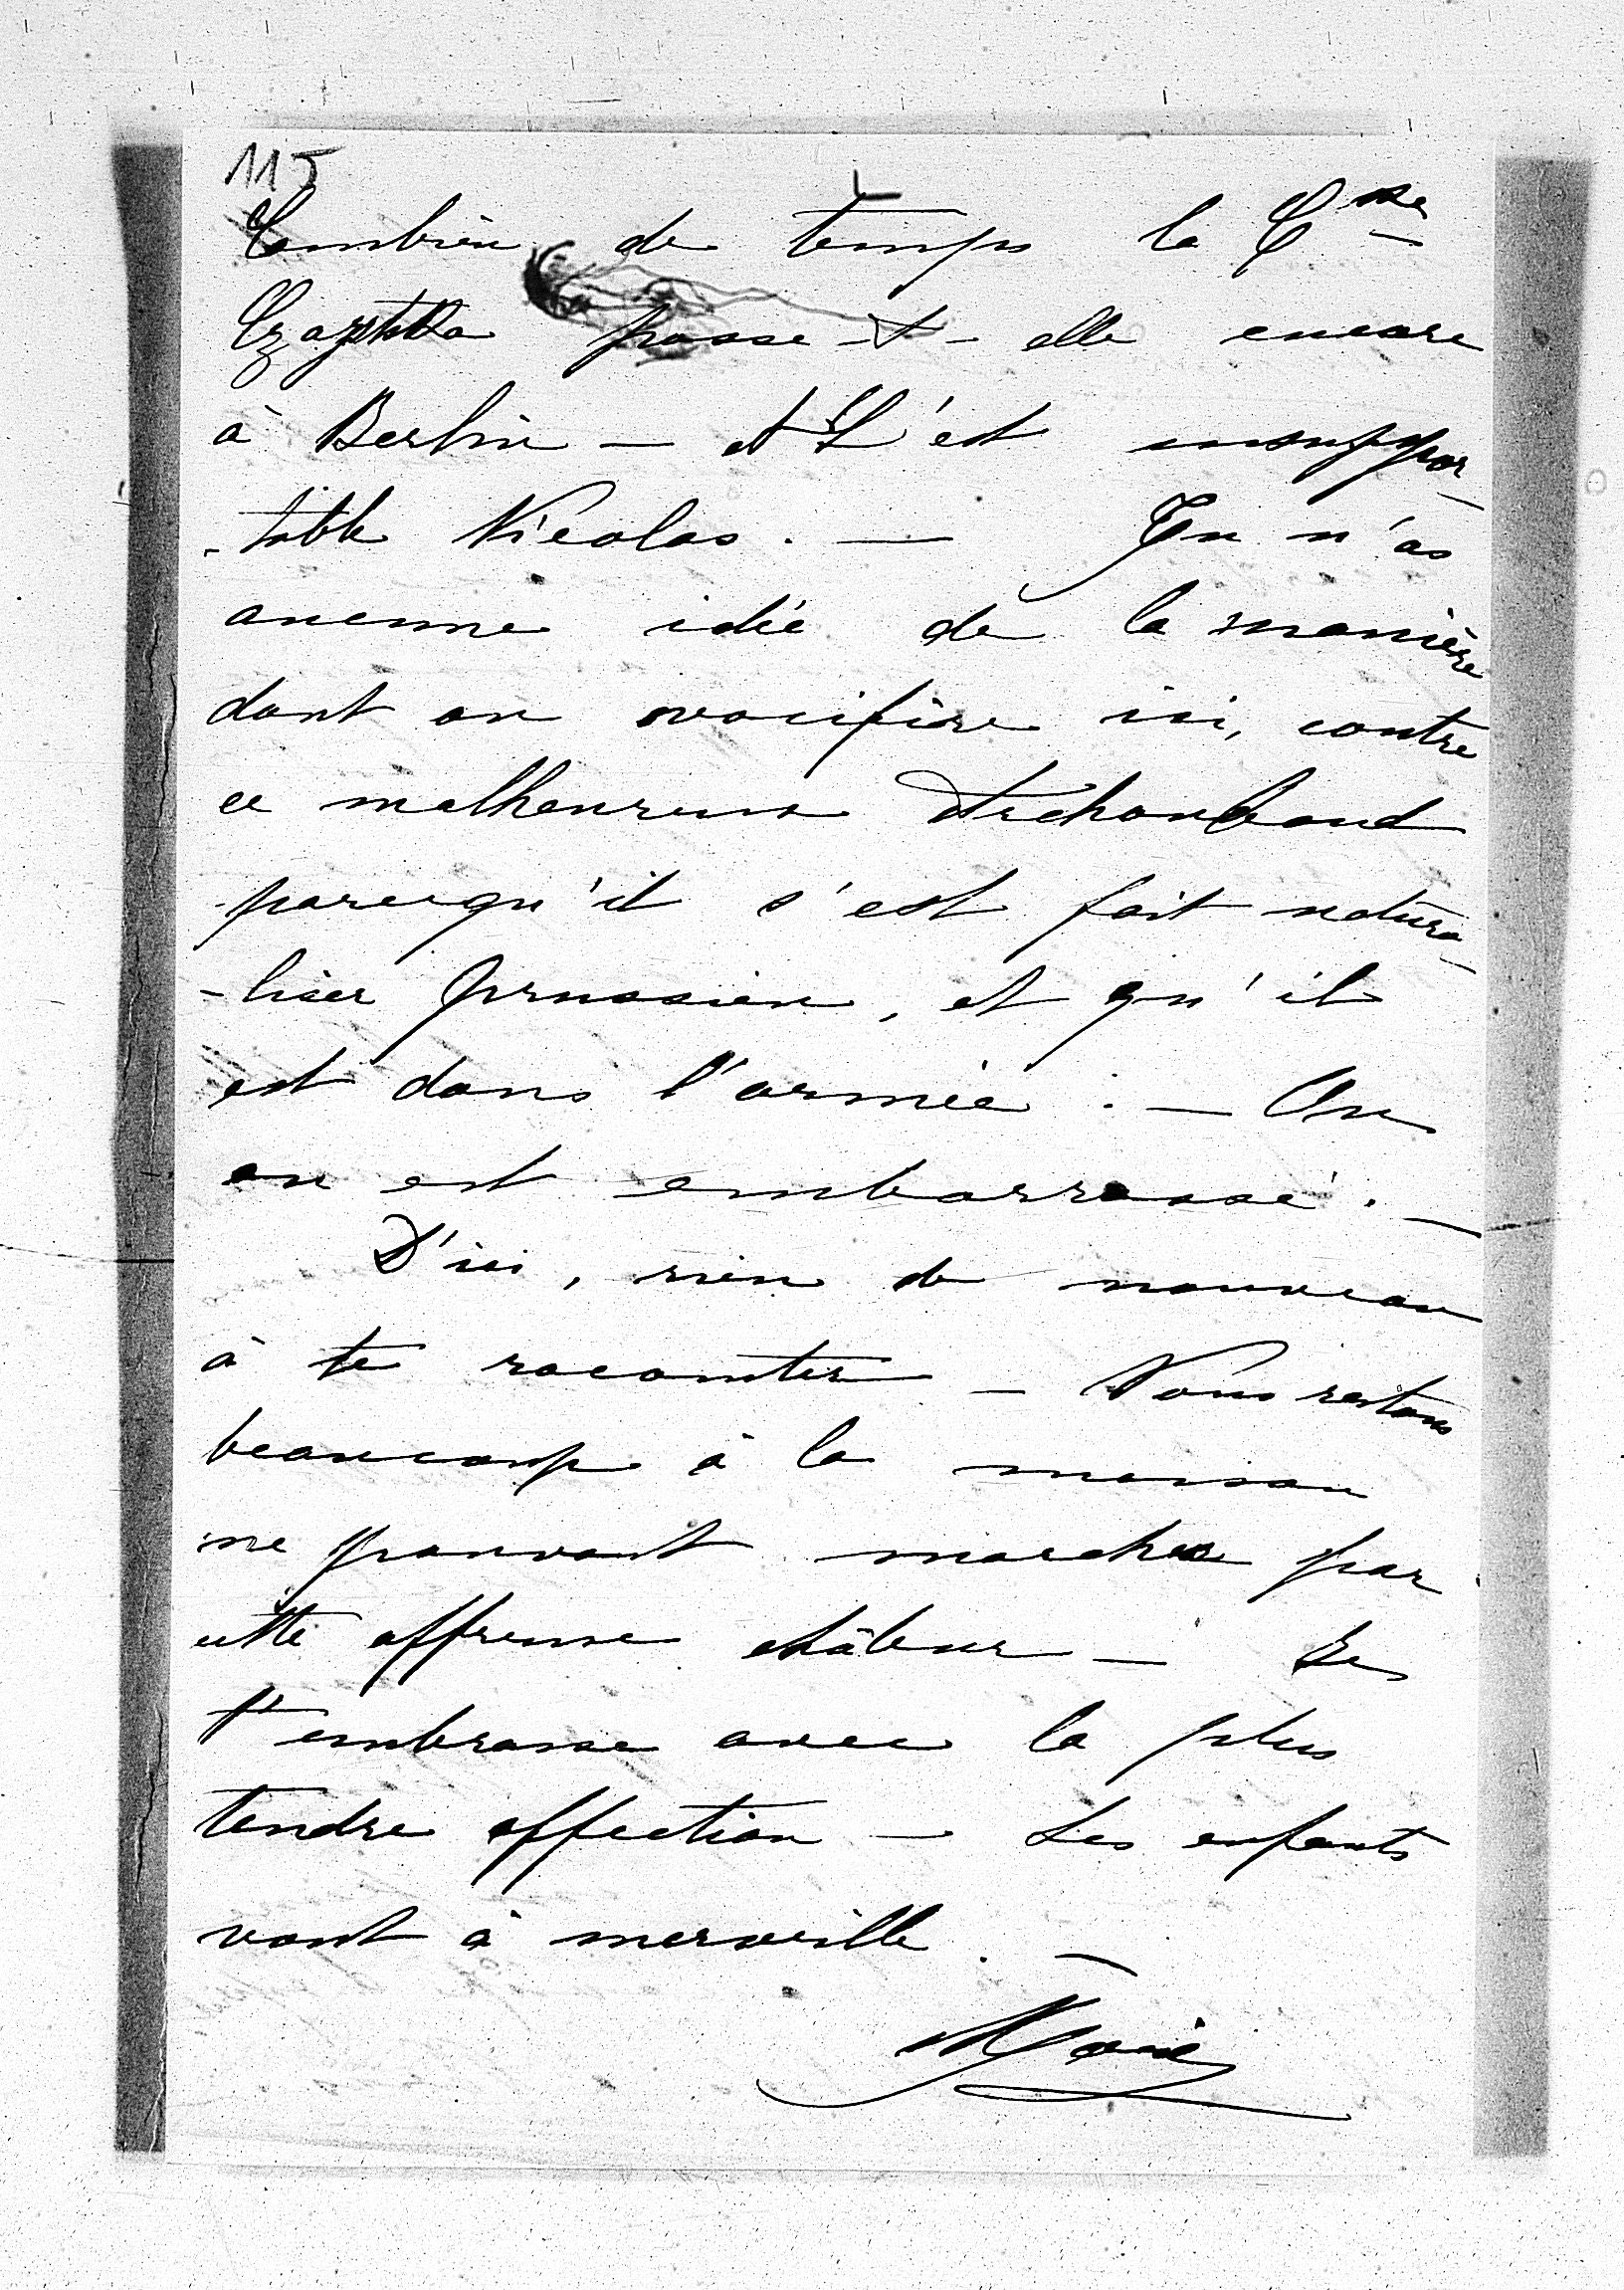 115
Combien de temps la Csse
passe-t-elle encore
à Berlin — et L'est insuppor
-table Nicolas. — Tu n'as
aucune idée de la manière
dont on vocifère ici, contre
ce malheureux
parcequ'il s'est fait natura
-liser prussien, et qu'il
est dans l'armée. — On
en est embarrassé. —
D'ici, rien de nouveau
à te raconter — Nous restons
beaucoup à la maison
ne pouvant marcher par
cette affreuse châleur — Je
t'embrasse avec la plus
tendre affection — Les enfants
vont à merveille. —
Marie